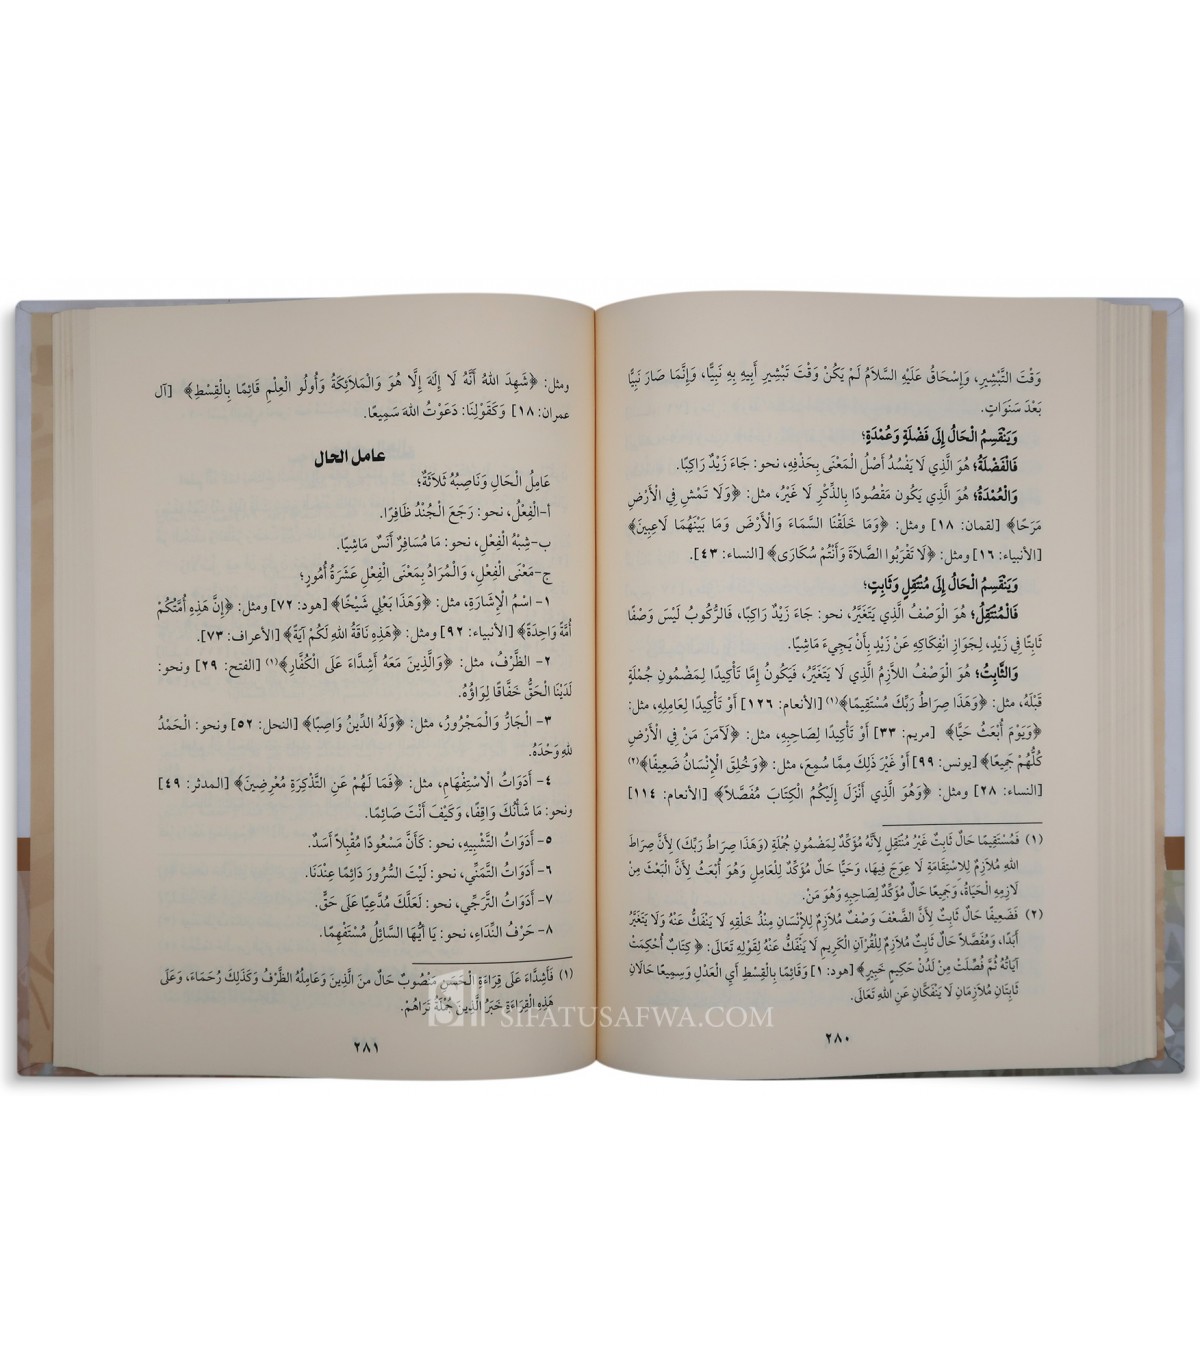 وَقْتَ التَّبْشِيرِ، وَإِسْحَاقُ عَلَيْهِ السَّلاَمُ لَمْ يَكُنْ وَقْتَ تَبْشِيرِ أَبِيهِ بِهِ نَبِيًّا، وَإِنَّمَا صَارَ نَبِيًّا
بَعْدَ سَنَوَاتٍ.
وَيَنْقَسِمُ الْحَالُ إِلَى فَضْلَةٍ وَعُمْدَةٍ؛
فَالْفَضْلَةُ؛ هُوَ الَّذِي لَا يَفْسُدُ أَصْلُ الْمَعْنَى بِحَذْفِهِ، نحو: جَاءَ زَيْدٌ رَاكِبًا.
وَالْعُمْدَةُ؛ هُوَ الَّذِي يَكُون مَقْصُودًا بِالذِّكْرِ لَا غَيْرُ، مثل: ﴿وَلَا تَمْشِ فِي الْأَرْضِ
مَرَحًا﴾ [لقمان: ١٨] ومثل: ﴿وَمَا خَلَقْنَا السَّمَاءَ وَالْأَرْضَ وَمَا بَيْنَهُمَا لَاعِبِينَ﴾
[الأنبياء: ١٦] ومثل: ﴿لَا تَقْرَبُوا الصَّلَاةَ وَأَنْتُمْ سُكَارَى﴾ [النساء: ٤٣].
وَيَنْقَسِمُ الْحَالُ إِلَى مُنْتَقِلٍ وَثَابِتٍ؛
فَالْمُنْتَقِلُ؛ هُوَ الْوَصْفُ الَّذِي يَتَغَيَّرُ، نحو: جَاءَ زَيْدٌ رَاكِبًا، فَالرُّكُوبُ لَيْسَ وَصْفًا
ثَابِتًا فِي زَيْدٍ، لِجَوَازِ انْفِكَاكِهِ عَنْ زَيْدٍ بِأَنْ يَجِيءَ مَاشِيًا.
وَالثَّابِتُ؛ هُوَ الْوَصْفُ اللَّازِمُ الَّذِي لَا يَتَغَيَّرُ، فَيَكُونُ إِمَّا تَأْكِيدًا لِمَضْمُونِ جُمْلَةٍ
قَبْلَهُ، مثل: ﴿وَهَذَا صِرَاطُ رَبِّكَ مُسْتَقِيمًا﴾(١) [الأنعام: ١٢٦] أَوْ تَأْكِيدًا لِعَامِلِهِ، مثل:
﴿وَيَوْمَ أُبْعَثُ حَيًّا﴾ [مريم: ٣٣] أَوْ تَأْكِيدًا لِصَاحِبِهِ، مثل: ﴿لَآمَنَ مَنْ فِي الْأَرْضِ
كُلُّهُمْ جَمِيعًا﴾ [يونس: ٩٩] أَوْ غَيْرَ ذَلِكَ مِمَّا سُمِعَ، مثل: ﴿وَخُلِقَ الْإِنْسَانُ ضَعِيفًا﴾(٢)
[النساء: ٢٨] ومثل: ﴿وَهُوَ الَّذِي أَنْزَلَ إِلَيْكُمُ الْكِتَابَ مُفَصَّلاً﴾ [الأنعام: ١١٤]
(١) فَمُسْتَقِيمًا حَالٌ ثَابِتٌ غَيْرُ مُنْتَقِلٍ لِأَنَّهُ مُؤَكِّدٌ لِمَضْمُونِ جُمْلَةِ (وَهَذَا صِرَاطُ رَبِّكَ) لِأَنَّ صِرَاطَ
اللهِ مُلَازِمٌ لِلِاسْتِقَامَةِ لَا عِوَجَ فِيهَا، وَحَيًّا حَالٌ مُؤَكِّدٌ لِلْعَامِلِ وَهُوَ أُبْعَثُ لِأَنَّ الْبَعْثَ مِنْ
لَازِمِهِ الْحَيَاةُ، وَجَمِيعًا حَالٌ مُؤَكِّدٌ لِصَاحِبِهِ وَهُوَ مَنْ.
(٢) فَضَعِيفًا حَالٌ ثَابِتٌ لِأَنَّ الضَّعْفَ وَصْفٌ مُلَازِمٌ لِلْإِنْسَانِ مُنْذُ خَلْقِهِ لَا يَنْفَكُّ عَنْهُ وَلَا يَتَغَيَّرُ
أَبَدًا، وَمُفَصَّلاً حَالٌ ثَابِتٌ مُلَازِمٌ لِلْقُرْآنِ الْكَرِيمِ لَا يَنْفَكُّ عَنْهُ لِقَوْلِهِ تَعَالَى: ﴿كِتَابٌ أُحْكِمَتْ
آيَاتُهُ ثُمَّ فُصِّلَتْ مِنْ لَدُنْ حَكِيمٍ خَبِيرٍ﴾ [هود: ١] وَقَائِمًا بِالْقِسْطِ أَيِ الْعَدْلِ وَسَمِيعًا حَالَانِ
ثَابِتَانِ مُلَازِمَانِ لَا يَنْفَكَّانِ عَنِ اللهِ تَعَالَى.
٢٨٠
ومثل: ﴿شَهِدَ اللهُ أَنَّهُ لَا إِلَهَ إِلَّا هُوَ وَالْمَلَائِكَةُ وَأُولُو الْعِلْمِ قَائِمًا بِالْقِسْطِ﴾ [آل
عمران: ١٨] وَكَقَوْلِنَا: دَعَوْتُ اللهَ سَمِيعًا.
عامل الحال
عَامِلُ الْحَالِ وَنَاصِبُهُ ثَلَاثَةٌ؛
أ-الْفِعْلُ، نحو: رَجَعَ الْجُنْدُ ظَافِرًا.
ب-شِبْهُ الْفِعْلِ، نحو: مَا مُسَافِرٌ أَنَسٌ مَاشِيًا.
ج-مَعْنَى الْفِعْلِ، وَالْمُرَادُ بِمَعْنَى الْفِعْلِ عَشَرَةُ أُمُورٍ؛
١- اسْمُ الْإِشَارَةِ، مثل: ﴿وَهَذَا بَعْلِي شَيْخًا﴾ [هود: ٧٢] ومثل: ﴿إِنَّ هَذِهِ أُمَّتُكُمْ
أُمَّةً وَاحِدَةً﴾ [الأنبياء: ٩٢] ومثل: ﴿هَذِهِ نَاقَةُ اللهِ لَكُمْ آيَةً﴾ [الأعراف: ٧٣].
٢- الظَّرْفُ، مثل: ﴿وَالَّذِينَ مَعَهُ أَشِدَّاءَ عَلَى الْكُفَّارِ﴾(١) [الفتح: ٢٩] ونحو:
لَدَيْنَا الْحَقُّ خَفَّاقًا لِوَاؤُهُ.
٣- الْجَارُّ وَالْمَجْرُورُ، مثل: ﴿وَلَهُ الدِّينُ وَاصِبًا﴾ [النحل: ٥٢] ونحو: الْحَمْدُ
للهِ وَحْدَهُ.
٤- أَدَوَاتُ الْاسْتِفْهَامِ، مثل: ﴿فَمَا لَهُمْ عَنِ التَّذْكِرَةِ مُعْرِضِينَ﴾ [المدثر: ٤٩]
ونحو: مَا شَأْنُكَ وَاقِفًا، وَكَيْفَ أَنْتَ صَائِمًا.
٥- أَدَوَاتُ التَّشْبِيهِ، نحو: كَأَنَّ مَسْعُودًا مُقْبِلاً أَسَدٌ.
٦- أَدَوَاتُ التَّمَنِّي، نحو: لَيْتَ السُّرُورَ دَائِمًا عِنْدَنَا.
٧- أَدَوَاتُ التَّرَجِّي، نحو: لَعَلَّكَ مُدَّعِيًا عَلَى حَقٍّ.
٨- حَرْفُ النِّدَاءِ، نحو: يَا أَيُّهَا السَّائِلُ مُسْتَفْهِمًا.
(١) فَأَشِدَّاءَ عَلَى قِرَاءَةِ الْحَسَنِ مَنْصُوبٌ حَالٌ مِنَ الَّذِينَ وَعَامِلُهُ الظَّرْفُ وَكَذَلِكَ رُحَمَاءَ، وَعَلَى
هَذِهِ الْقِرَاءَةِ خَبَرُ الَّذِينَ جُمْلَةُ تَرَاهُمْ.
٢٨١
SIFATUSAFWA.COM